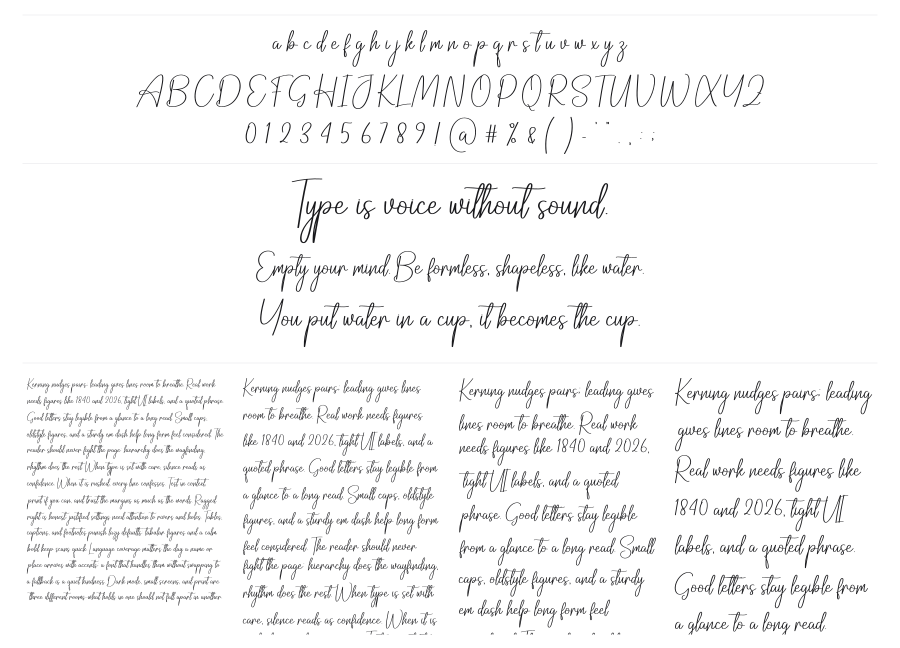 a b c d e f g h i j k l m n o p q r s t u v w x y z
A B C D E F G H I J K L M N O P Q R S T U V W X Y Z
0 1 2 3 4 5 6 7 8 9 ! @ # % & ( ) - ' " . , : ;
Type is voice without sound.
Empty your mind. Be formless, shapeless, like water.
You put water in a cup, it becomes the cup.
Kerning nudges pairs; leading gives lines room to breathe. Real work
needs figures like 1840 and 2026, tight UI labels, and a quoted phrase.
Good letters stay legible from a glance to a long read. Small caps,
oldstyle figures, and a sturdy em dash help long form feel considered. The
reader should never fight the page; hierarchy does the wayfinding,
rhythm does the rest. When type is set with care, silence reads as
confidence. When it is rushed, every line confesses. Test in context,
print if you can, and trust the margins as much as the words. Ragged
right is honest; justified settings need attention to rivers and holes. Tables,
captions, and footnotes punish lazy defaults; tabular figures and a calm
bold keep scans quick. Language coverage matters the day a name or
place arrives with accents; a font that handles them without swapping to
a fallback is a quiet kindness. Dark mode, small screens, and print are
three different rooms; what holds in one should not fall apart in another.
Kerning nudges pairs; leading gives lines
room to breathe. Real work needs figures
like 1840 and 2026, tight UI labels, and a
quoted phrase. Good letters stay legible from
a glance to a long read. Small caps, oldstyle
figures, and a sturdy em dash help long form
feel considered. The reader should never
fight the page; hierarchy does the wayfinding,
rhythm does the rest. When type is set with
care, silence reads as confidence. When it is
Kerning nudges pairs; leading gives
lines room to breathe. Real work
needs figures like 1840 and 2026,
tight UI labels, and a quoted
phrase. Good letters stay legible
from a glance to a long read. Small
caps, oldstyle figures, and a sturdy
em dash help long form feel
Kerning nudges pairs; leading
gives lines room to breathe.
Real work needs figures like
1840 and 2026, tight UI
labels, and a quoted phrase.
Good letters stay legible from
a glance to a long read.